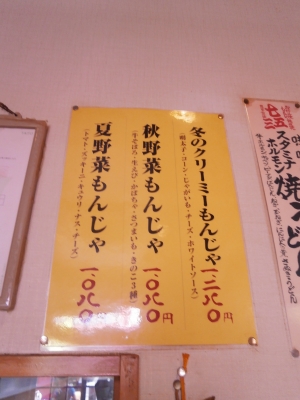 冬のクリーミーもんじゃ 一、二八〇円
(明太子・コーン・じゃがいも・チーズ・ホワイトソース)
秋野菜もんじゃ 一、〇八〇円
(牛そぼろ・生えび・かぼちゃ・さつまいも・きのこ3種)
夏野菜もんじゃ 一、〇八〇円
(トマト・ズッキーニ・キュウリ・ナス・チーズ)
スタミナ
ホルモン